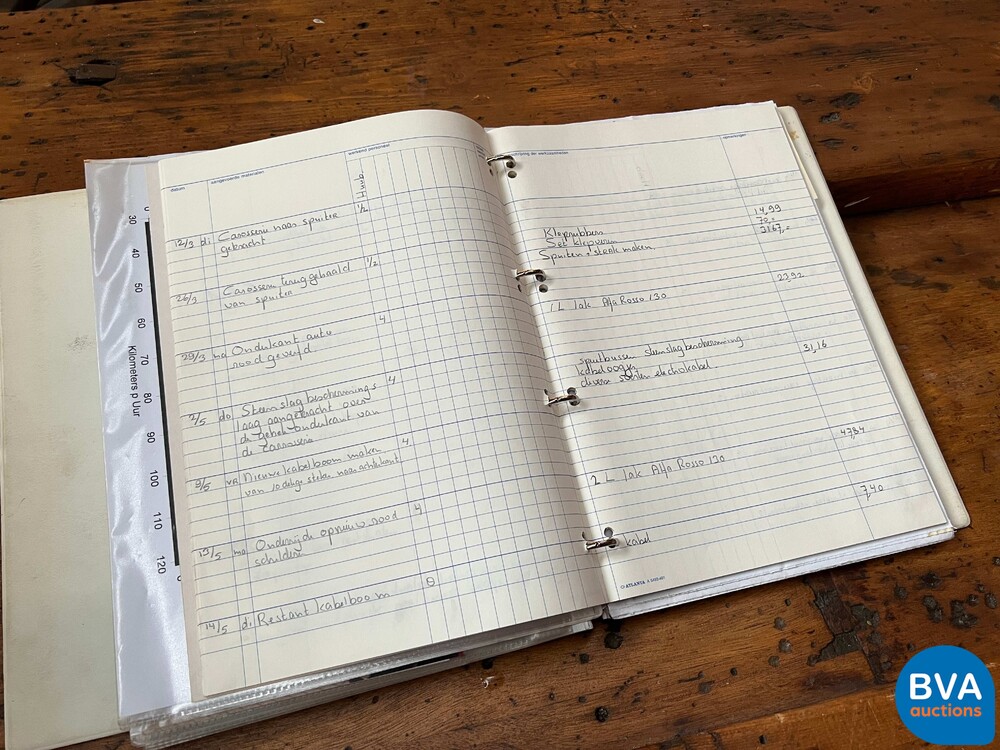 datum
aangevoerde materialen
werkend personeel
Huub
12/3 di Carosserie naar spuiter 1/2
gebracht
26/3 Carosserie teruggehaald 1/2
van spuiter
29/3 ma Onderkant auto 4
rood geverfd
2/5 do Steenslagbeschermings 4
laag aangebracht over
de gehele onderkant van
de carrosserie
3/5 vr Nieuwe kabelboom maken 4
van 10 delige steker naar achterkant
13/5 ma Onderzijde opnieuw rood 4
schilderen
14/5 di Restant kabelboom 8
opmerkingen
Kleprubbers 14,99
Set klepveren 70,=
Spuiten + sterk maken 2167,=
23,92
1 L lak Alfa Rosso 130
spuitbussen steenslagbescherming
kabelogen 31,16
diverse stekers
47,84
2 L lak Alfa Rosso 130
7,40
kabel
ATLANTA
30
40
50
60
70
80
90
100
110
120
Kilometers p Uur
BVA
auctions